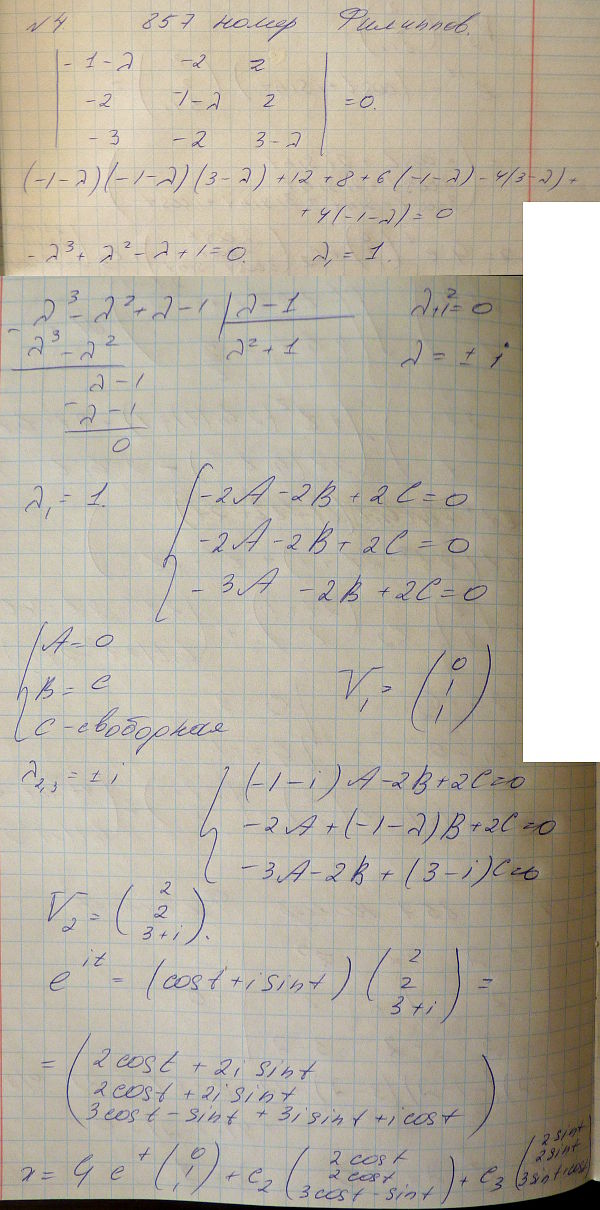 №4 857 номер Филиппов.
| -1-λ -2 2 |
| -2 -1-λ 2 | = 0.
| -3 -2 3-λ |
(-1-λ)(-1-λ)(3-λ)+12+8+6(-1-λ)-4(3-λ)+
+4(-1-λ)=0
-λ³+λ²-λ+1=0. λ₁=1.
-λ³-λ²+λ-1 | λ-1 λ²+1=0
λ³-λ² λ²+1 λ=±i
λ-1
-λ-1
0
λ₁=1. { -2A-2B+2C=0
-2A-2B+2C=0
-3A-2B+2C=0
{ A=0
B=C
C-свободная
V₁=(0 1 1)
λ₂,₃=±i { (-1-i)A-2B+2C=0
-2A+(-1-λ)B+2C=0
-3A-2B+(3-i)C=0
V₂=(2 2 3+i).
e^{it}=(cost+i sint)(2 2 3+i)=
=(2cost+2i sint
2cost+2i sint
3cost-sint+3i sint+i cost)
x=C₁e^t(0 1 1)+C₂(2cost 2cost 3cost-sint)+C₃(2sint 2sint 3sint+cost)